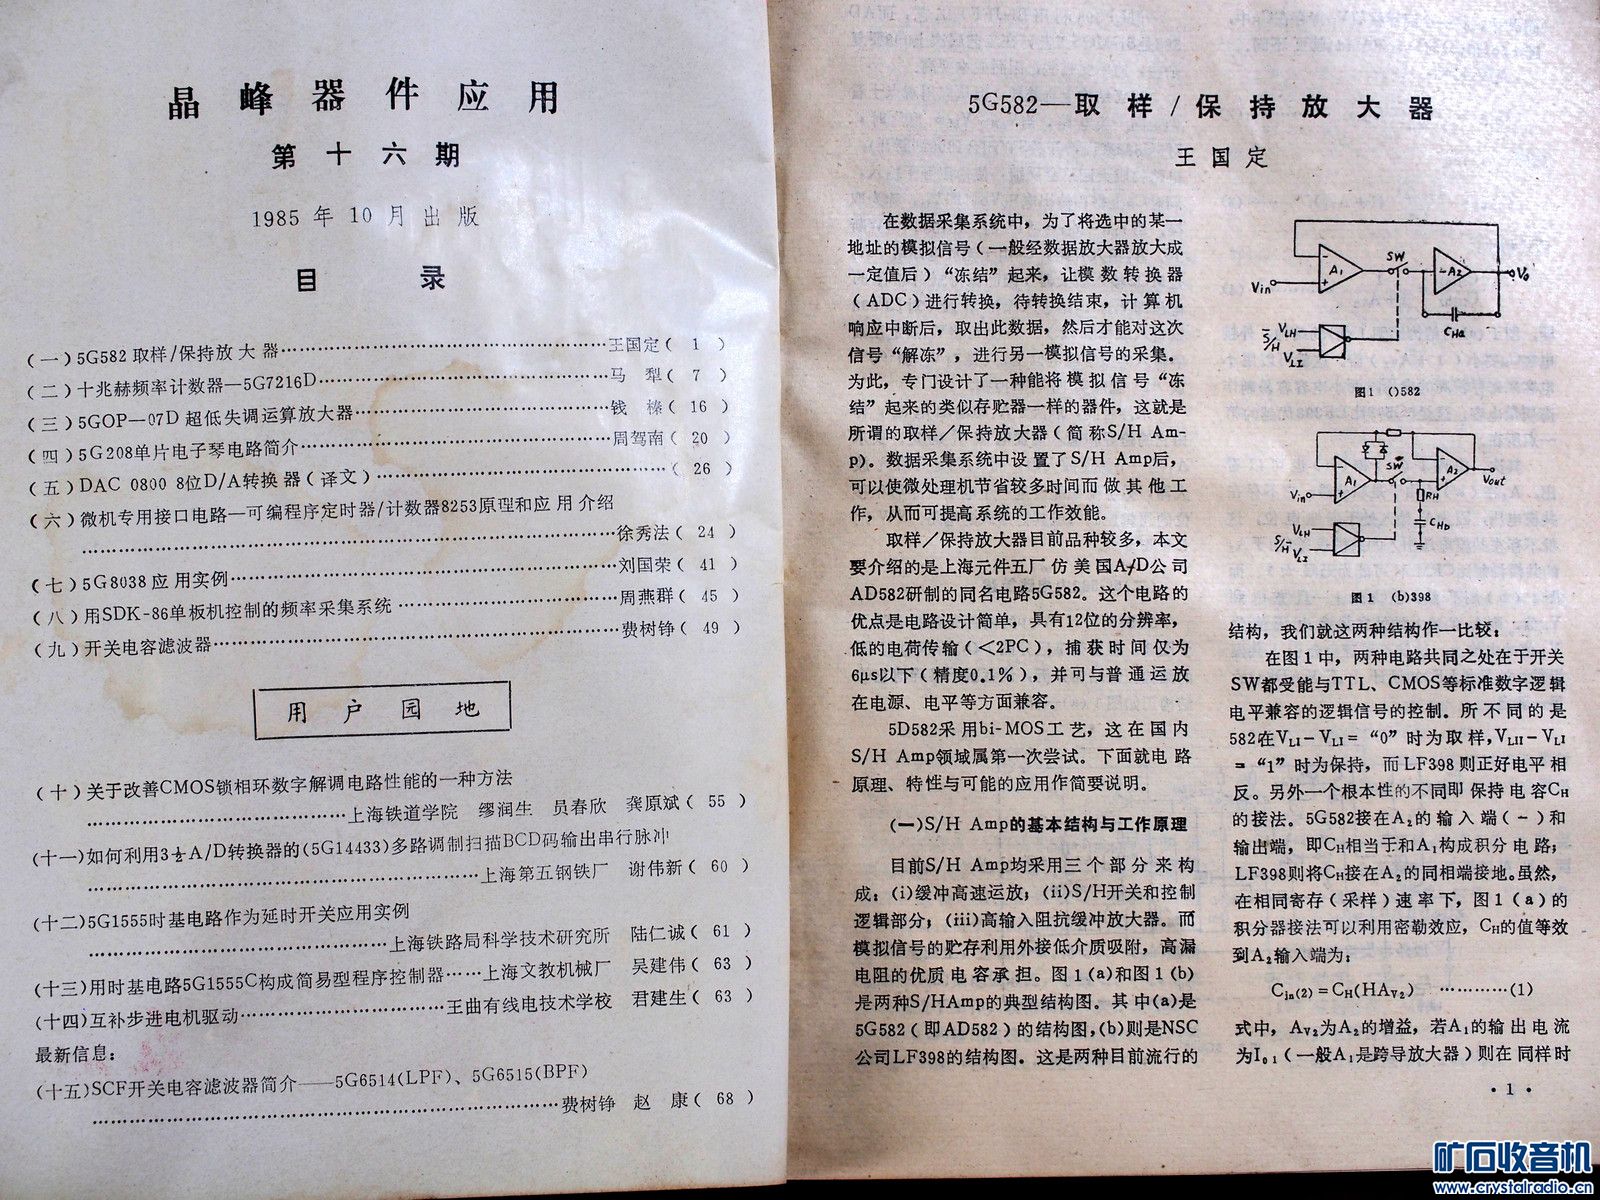 晶峰器件应用
第十六期
1985年10月出版
目 录
(一)5G582取样/保持放大器……王国定( 1 )
(二)十兆赫频率计数器—5G7216D……马 犁( 7 )
(三)5GOP—07D超低失调运算放大器……钱 榛( 16 )
(四)5G208单片电子琴电路简介……周驾南( 20 )
(五)DAC 0800 8位D/A转换器(译文)……( 26 )
(六)微机专用接口电路—可编程序定时器/计数器8253原理和应用介绍
……徐秀法( 24 )
(七)5G8038应用实例……刘国荣( 41 )
(八)用SDK-86单板机控制的频率采集系统……周燕群( 45 )
(九)开关电容滤波器……费树铮( 49 )
用户园地
(十)关于改善CMOS锁相环数字解调电路性能的一种方法
……上海铁道学院 缪润生 员春欣 龚原斌( 55 )
(十一)如何利用3½A/D转换器的(5G14433)多路调制扫描BCD码输出串行脉冲
……上海第五钢铁厂 谢伟新( 60 )
(十二)5G1555时基电路作为延时开关应用实例
……上海铁路局科学技术研究所 陆仁诚( 61 )
(十三)用时基电路5G1555C构成简易型程序控制器……上海文教机械厂 吴建伟( 63 )
(十四)互补步进电机驱动……王曲有线电技术学校 君建生( 63 )
最新信息:
(十五)SCF开关电容滤波器简介——5G6514(LPF)、5G6515(BPF)
……费树铮 赵 康( 68 )
5G582—取样/保持放大器
王国定
在数据采集系统中，为了将选中的某一
地址的模拟信号(一般经数据放大器放大成
一定值后)“冻结”起来，让模数转换器
(ADC)进行转换，待转换结束，计算机
响应中断后，取出此数据，然后才能对这次
信号“解冻”，进行另一模拟信号的采集。
为此，专门设计了一种能将模拟信号“冻
结”起来的类似存贮器一样的器件，这就是
所谓的取样／保持放大器(简称S/H Am-
p)。数据采集系统中设置了S/H Amp后，
可以使微处理机节省较多时间而做其他工
作，从而可提高系统的工作效能。
取样／保持放大器目前品种较多，本文
要介绍的是上海元件五厂仿美国A/D公司
AD582研制的同名电路5G582。这个电路的
优点是电路设计简单，具有12位的分辨率，
低的电荷传输(＜2PC)，捕获时间仅为
6μs以下(精度0.1%)，并可与普通运放
在电源、电平等方面兼容。
5D582采用bi-MOS工艺，这在国内
S/H Amp领域属第一次尝试。下面就电路
原理、特性与可能的应用作简要说明。
(一)S/H Amp的基本结构与工作原理
目前S/H Amp均采用三个部分来构
成：(i)缓冲高速运放；(ii)S/H开关和控制
逻辑部分；(iii)高输入阻抗缓冲放大器。而
模拟信号的贮存利用外接低介质吸附，高漏
电阻的优质电容承担。图1(a)和图1(b)
是两种S/HAmp的典型结构图。其中(a)是
5G582(即AD582)的结构图,(b)则是NSC
公司LF398的结构图。这是两种目前流行的
A₁ SW -A₂ V₀
Vin
C_Ha
S̄/H V_LH
V_LI
图1 ()582
A₁ SW A₂ Vout
Vin
RH
C_Hb
V_LH
S/H̄ V_LI
图1 (b)398
结构，我们就这两种结构作一比较：
在图1中，两种电路共同之处在于开关
SW都受能与TTL、CMOS等标准数字逻辑
电平兼容的逻辑信号的控制。所不同的是
582在V_LI－V_LI＝“0”时为取样,V_LII－V_LI
＝“1”时为保持，而LF398则正好电平相
反。另外一个根本性的不同即保持电容C_H
的接法。5G582接在A₂的输入端(－)和
输出端，即C_H相当于和A₁构成积分电路；
LF398则将C_H接在A₂的同相端接地。虽然,
在相同寄存(采样)速率下，图1(a)的
积分器接法可以利用密勒效应，C_H的值等效
到A₂输入端为：
C_in(2)＝C_H(HA_V2) …………(1)
式中，A_V2为A₂的增益，若A₁的输出电流
为I₀₁(一般A₁是跨导放大器)则在同样时
·1·
矿石收音机
www.crystalradio.cn